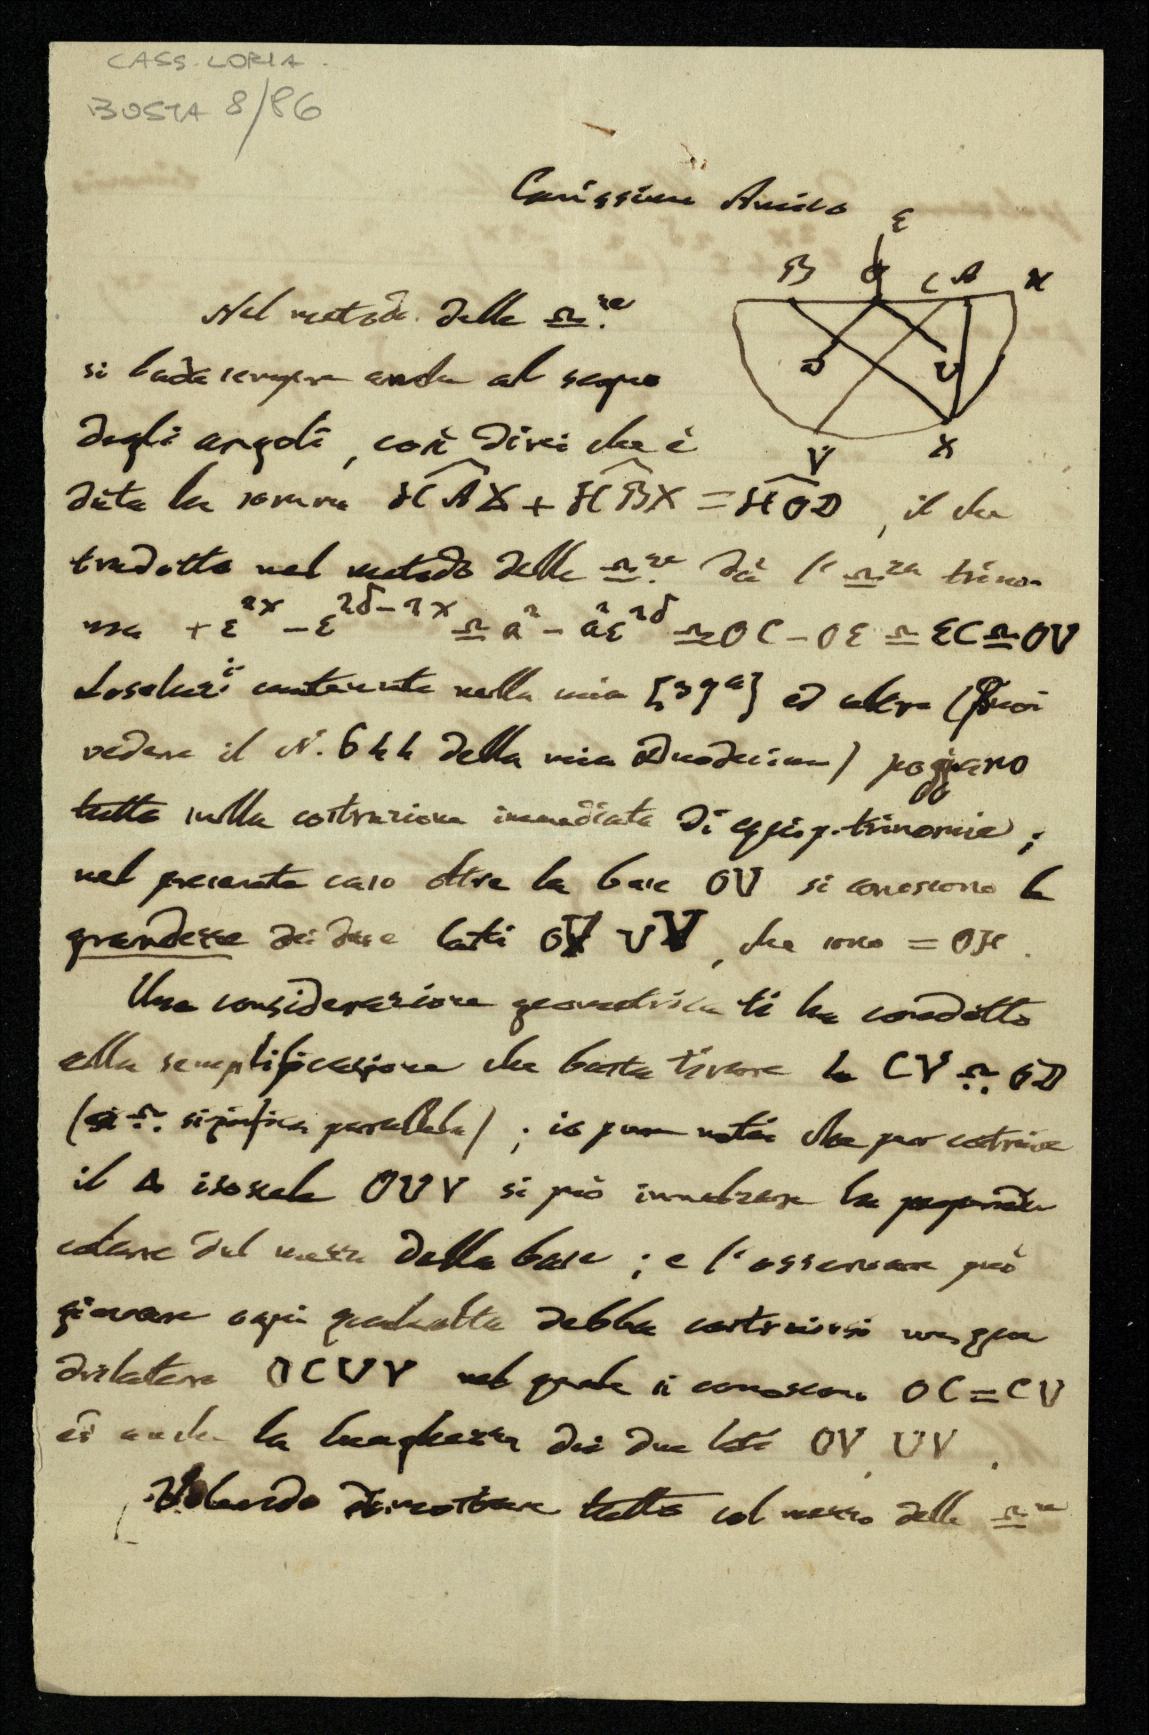 CASS. LORIA.
BUSTA 8/86
Carissimo Amico
ε
B O C A H
D U
V X
Nel metodo delle ≏ze
si bada sempre anche al segno
degli angoli, così direi che è
data la somma HAX + HBX = HOD, il che
tradotto nel metodo delle ≏ze dà l'≏za trino-
mia + ε^2x − ε^2δ−2x ≏ a² − a²ε^2δ ≏ OC − OE ≏ EC ≏ OU
La soluz. contenuta nella mia [39a] ed altre (puoi
vedere il N. 644 della mia Duodecima) poggiano
tutte sulla costruzione immediata di eqqip. trinomie;
nel presente caso oltre la base OU si conoscono le
grandezze dei due lati OV UV, che sono = OH.
Una considerazione geometrica ti ha condotto
alla semplificazione che basta tirare la CV ≏.. OD
(≏.. significa parallela); io pure notai che per costruire
il Δ isoscele OUV si può innalzare la perpendi
colare dal mezzo della base; e l'osservare può
giovare ogni qualvolta debba costruirsi un qua
drilatero OCUV nel quale si conoscono OC = CU
ed anche la lunghezza dei due lati OV, UV.
Volendo dimostrare tutto col mezzo delle ≏ze